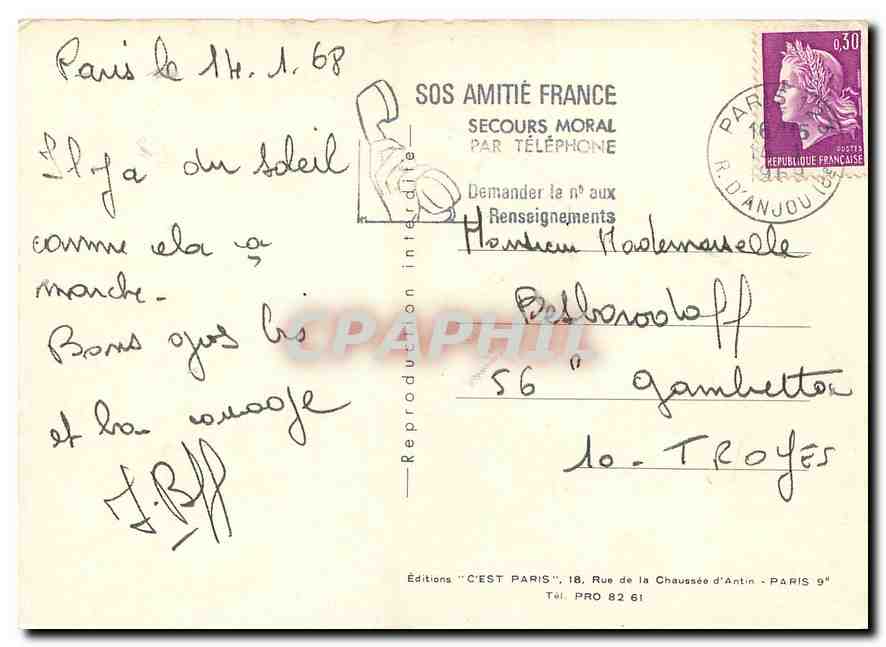 Paris le 14.1.68
Il y a du soleil
comme cela ça
marche.
Bons gros bis
et bon courage
J. Bff
SOS AMITIÉ FRANCE
SECOURS MORAL
PAR TÉLÉPHONE
Demander le nº aux
Renseignements
0,30
POSTES
REPUBLIQUE FRANÇAISE
PARIS
R. D'ANJOU (8e)
Reproduction interdite
Monsieur Mademoiselle
Besborodoff
56 " Gambetta
10 - TROYES
CPAPHIL
Éditions "C'EST PARIS", 18, Rue de la Chaussée d'Antin - PARIS 9e
Tél. PRO 82 61